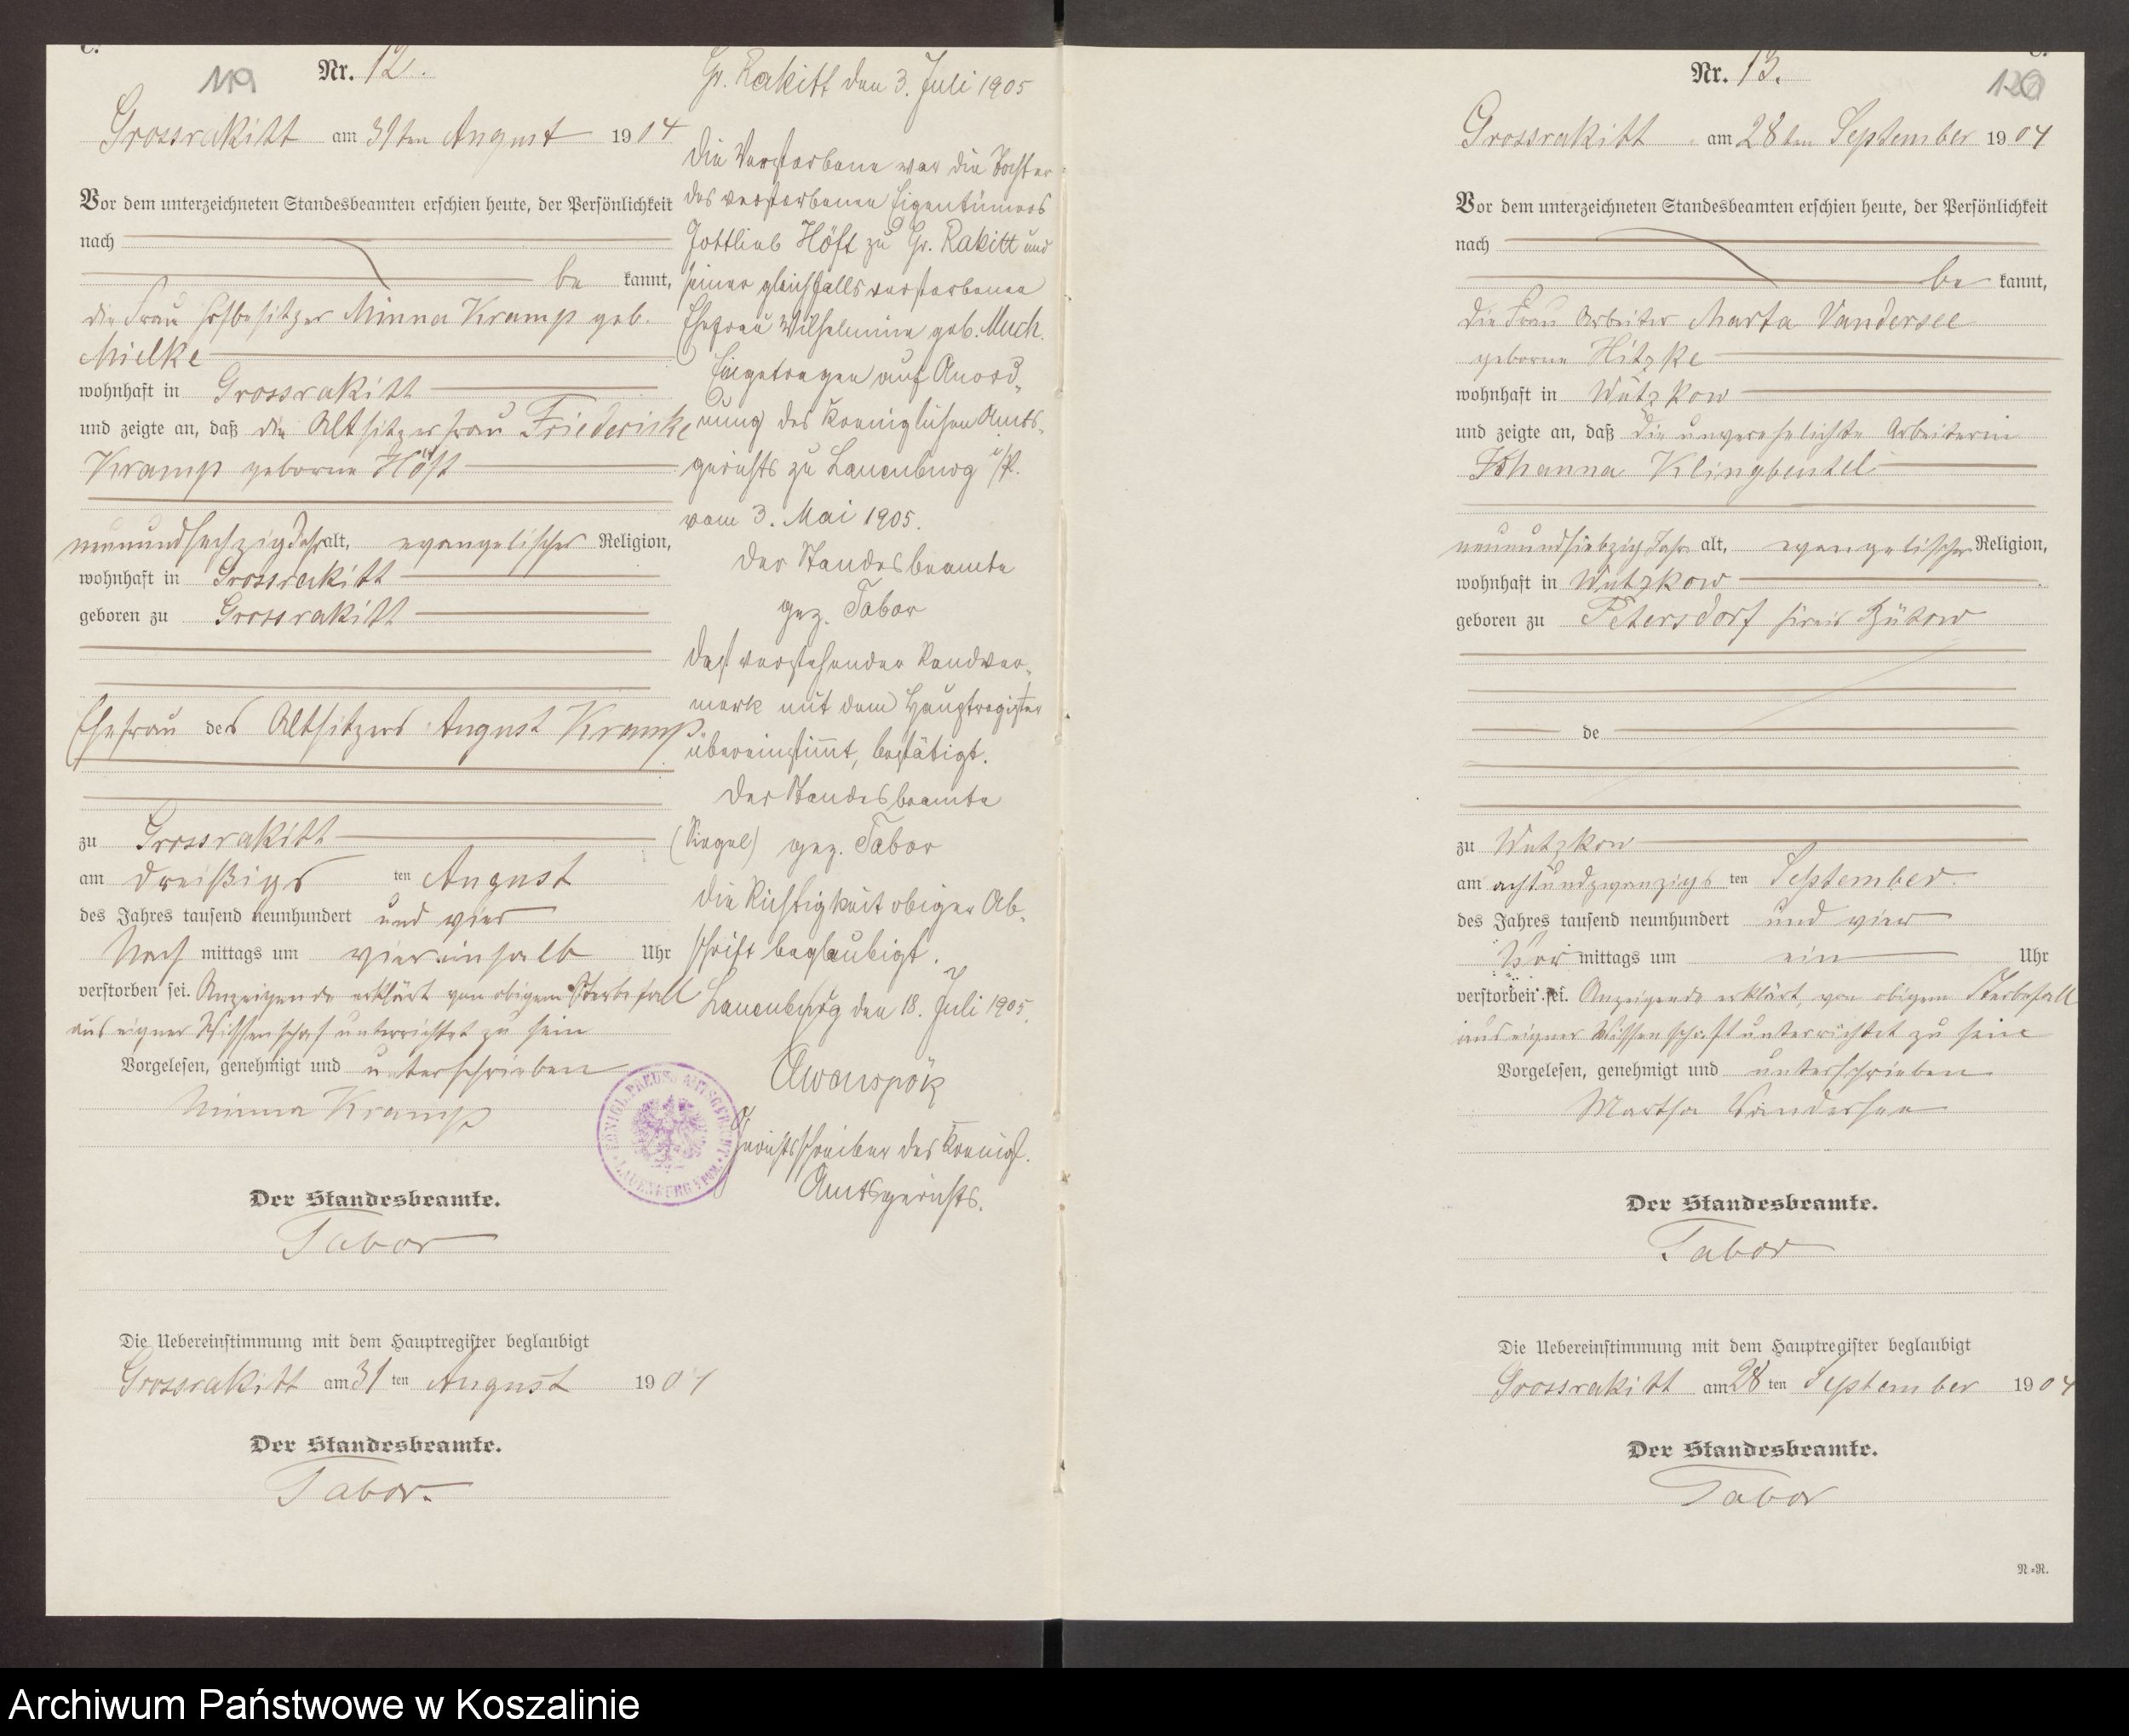 C.
119
Nr. 12.
Grossrakitt am 31ten August 1904
Vor dem unterzeichneten Standesbeamten erschien heute, der Persönlichkeit
nach
be kannt,
die Frau Hofbesitzer Minna Kramp geb.
Mielke
wohnhaft in Grossrakitt
und zeigte an, daß die Altsitzerfrau Friedericke
Kramp geborne Höft
neunundsechzig Jahr alt, evangelischer Religion,
wohnhaft in Grossrakitt
geboren zu Grossrakitt
Ehefrau des Altsitzers August Kramp.
zu Grossrakitt
am dreißigs ten August
des Jahres tausend neunhundert und vier
Nach mittags um viereinhalb Uhr
verstorben sei. Anzeigende erklärt von obigem Sterbefall
aus eigner Wissenschaf unterrichtet zu sein
Vorgelesen, genehmigt und unterschrieben
Minna Kramp
Der Standesbeamte.
Tabor
Die Uebereinstimmung mit dem Hauptregister beglaubigt
Grossrakitt am 31 ten August 1904
Der Standesbeamte.
Tabor.
Gr. Rakitt den 3. Juli 1905
Die Verstorbene war die Tochter
des verstorbenen Eigentümers
Gottlieb Höft zu Gr. Rakitt und
seiner gleichfalls verstorbenen
Ehefrau Wilhelmine geb. Much.
Eingetragen auf Anord-
nung des Koeniglichen Amts-
gerichts zu Lauenburg i/P.
vom 3. Mai 1905.
Der Standesbeamte
gez. Tabor
Daß vorstehender Randver-
merk mit dem Hauptregister
übereinstimmt, bestätigt.
Der Standesbeamte
(Siegel) gez. Tabor
Die Richtigkeit obiger Ab-
schrift beglaubigt.
Lauenburg den 18. Juli 1905.
Gerichtsschreiber des Koenigl.
Amtsgerichts.
KÖNIGL. PREUSS. AMTSGERICHT
LAUENBURG I. POM.
C.
120
Nr. 13.
Grossrakitt am 28ten September 1904
Vor dem unterzeichneten Standesbeamten erschien heute, der Persönlichkeit
nach
be kannt,
die Frau Arbeiter Marta Vandersee
geborne Hitzke
wohnhaft in Wutzkow
und zeigte an, daß die unverehelichte Arbeiterin
Johanna Klingbeutel
neunundsiebzig Jahr alt, evangelischer Religion,
wohnhaft in Wutzkow
geboren zu Petersdorf Kreis Bütow
de
zu Wutzkow
am achtundzwanzigs ten September
des Jahres tausend neunhundert und vier
Vor mittags um ein Uhr
verstorben sei. Anzeigende erklärt, von obigem Sterbefall
aus eigner Wissenschaft unterrichtet zu sein
Vorgelesen, genehmigt und unterschrieben
Martha Vandersee
Der Standesbeamte.
Tabor
Die Uebereinstimmung mit dem Hauptregister beglaubigt
Grossrakitt am 28 ten September 1904
Der Standesbeamte.
Tabor
N=R.
Archiwum Państwowe w Koszalinie